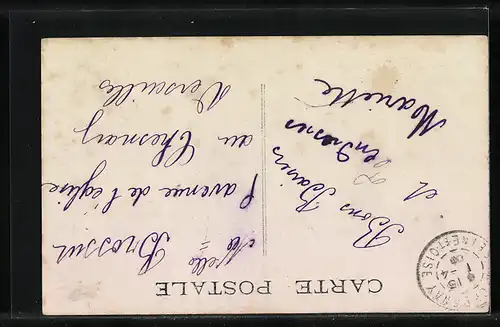 CARTE POSTALE
Bons Baisers
et
tendresses
Mariette
Melle Brossut
avenue de l'église
au Chesnay
Versailles
ET OISE